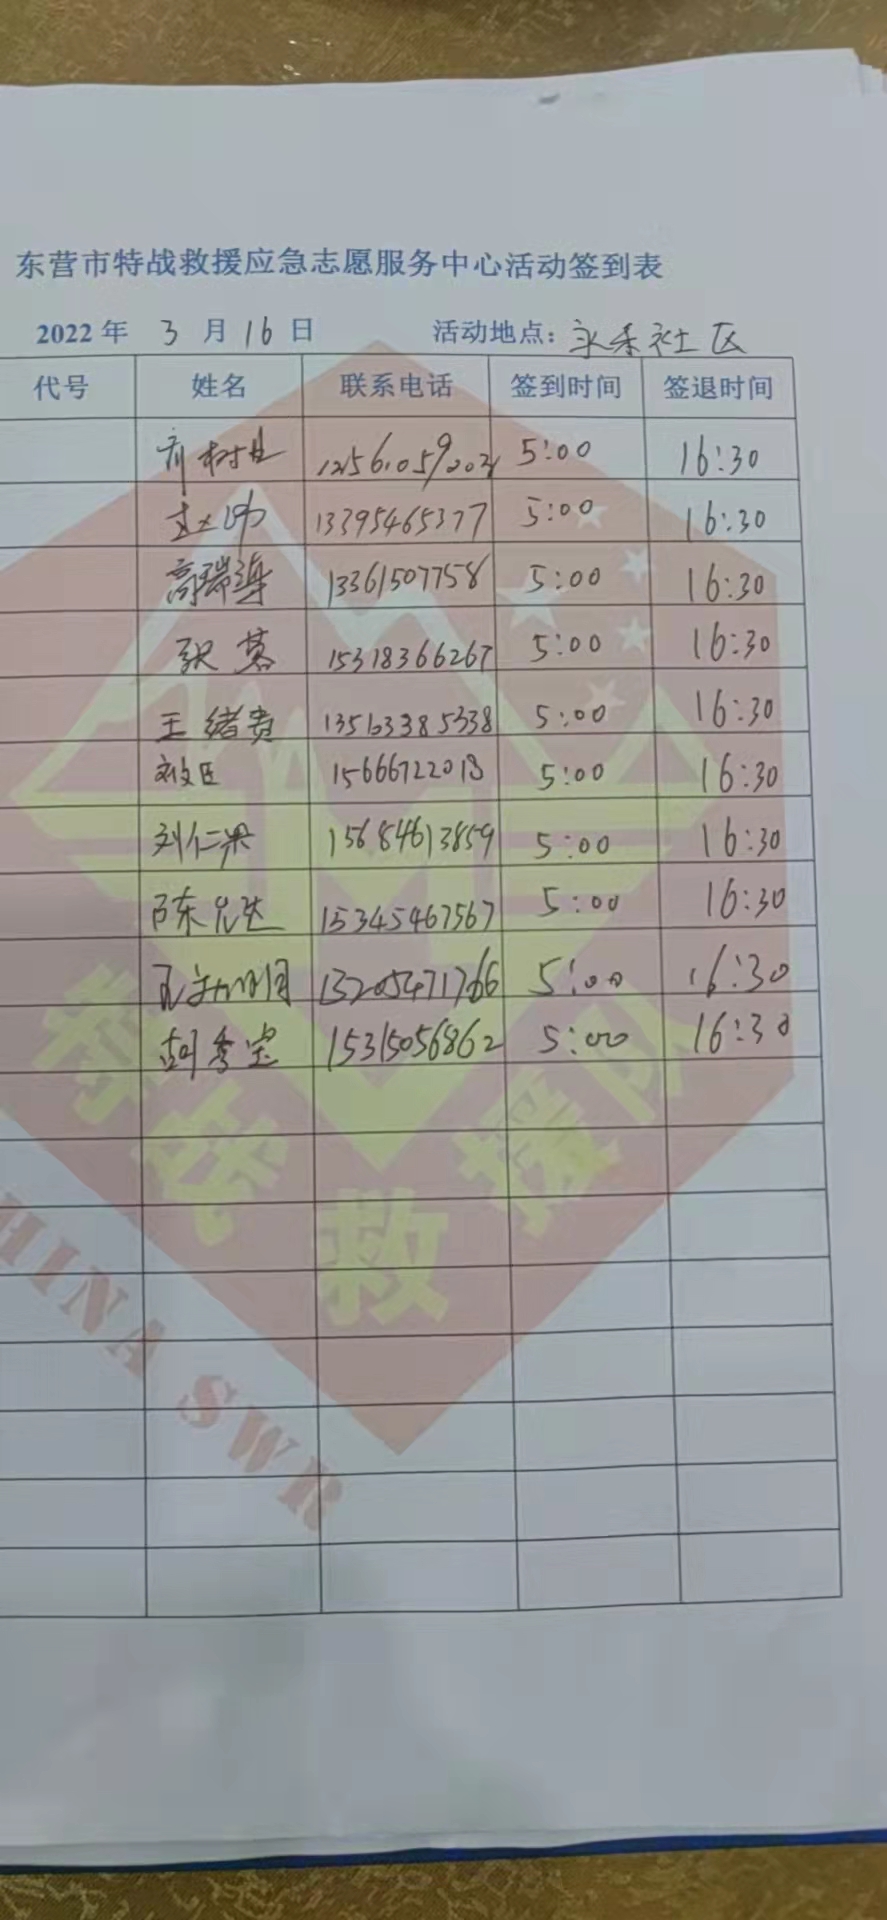 东营市特战救援应急志愿服务中心活动签到表
2022 年 3 月 16 日 活动地点: 社区
代号 姓名 联系电话 签到时间 签退时间
5:00 16:30
13395465377 5:00 16:30
高瑞 13361507758 5:00 16:30
15318366267 5:00 16:30
王绪贵 5:00 16:30
5:00 16:30
刘仁 15684613859 5:00 16:30
陈 15345467567 5:00 16:30
13205471766 5:00 16:30
胡秀宝 15315056862 5:00 16:30
特战救援队
HINA SWR